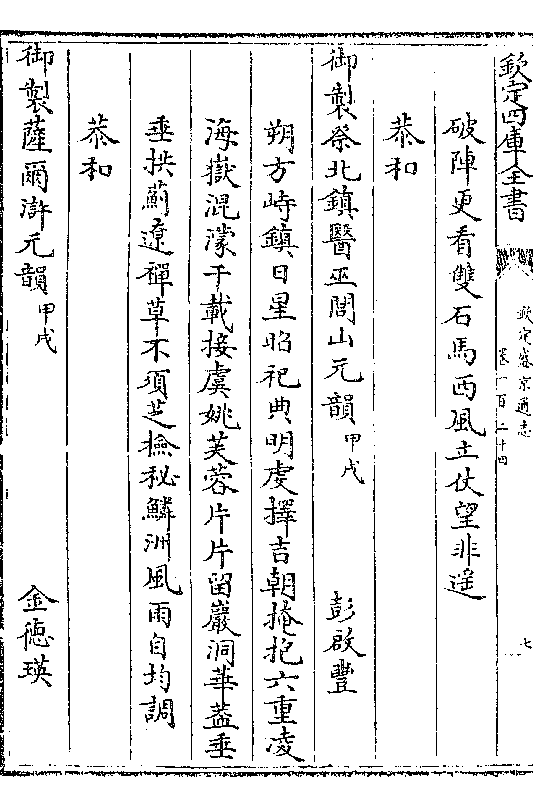 欽定四庫全書
欽定盛京通志
卷一百二十四
七
破陣更看雙石馬西風立仗望非遙
恭和
御製祭北鎮醫巫閭山元韻甲戌 彭啟豐
朔方峙鎮日星昭祀典明虔擇吉朝掩抱六重凌
海嶽混濛千載接虞姚芙蓉片片留巖洞華蓋垂
垂拱薊遼禪草不須芝撿秘鱗洲風雨自均調
恭和
御製薩爾滸元韻甲戌 金德瑛